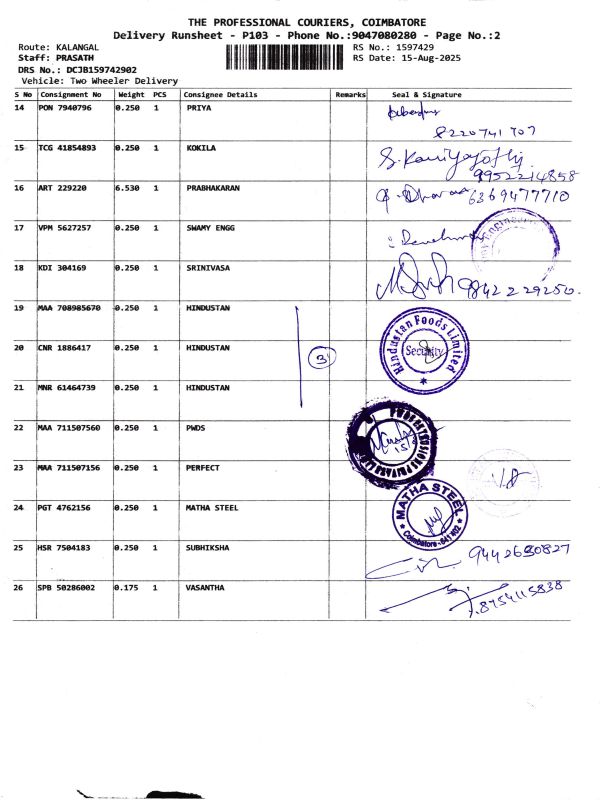 THE PROFESSIONAL COURIERS, COIMBATORE
Delivery Runsheet - P103 - Phone No.:9047080280 - Page No.:2
Route: KALANGAL RS No.: 1597429
Staff: PRASATH RS Date: 15-Aug-2025
DRS No.: DCJB159742902
Vehicle: Two Wheeler Delivery
S No Consignment No Weight PCS Consignee Details Remarks Seal & Signature
14 PON 7940796 0.250 1 PRIYA
8220741707
15 TCG 41854893 0.250 1 KOKILA
9952214858
16 ART 229220 6.530 1 PRABHAKARAN 6369477710
17 VPM 5627257 0.250 1 SWAMY ENGG
18 KDI 304169 0.250 1 SRINIVASA 9842229250.
19 MAA 708985670 0.250 1 HINDUSTAN
20 CNR 1886417 0.250 1 HINDUSTAN 3 Hindustan Foods Limited Security
21 MNR 61464739 0.250 1 HINDUSTAN
22 MAA 711507560 0.250 1 PWDS
23 MAA 711507156 0.250 1 PERFECT
24 PGT 4762156 0.250 1 MATHA STEEL MATHA STEEL Coimbatore - 641 402
25 HSR 7504183 0.250 1 SUBHIKSHA 9442690827
26 SPB 50286002 0.175 1 VASANTHA 8754115838